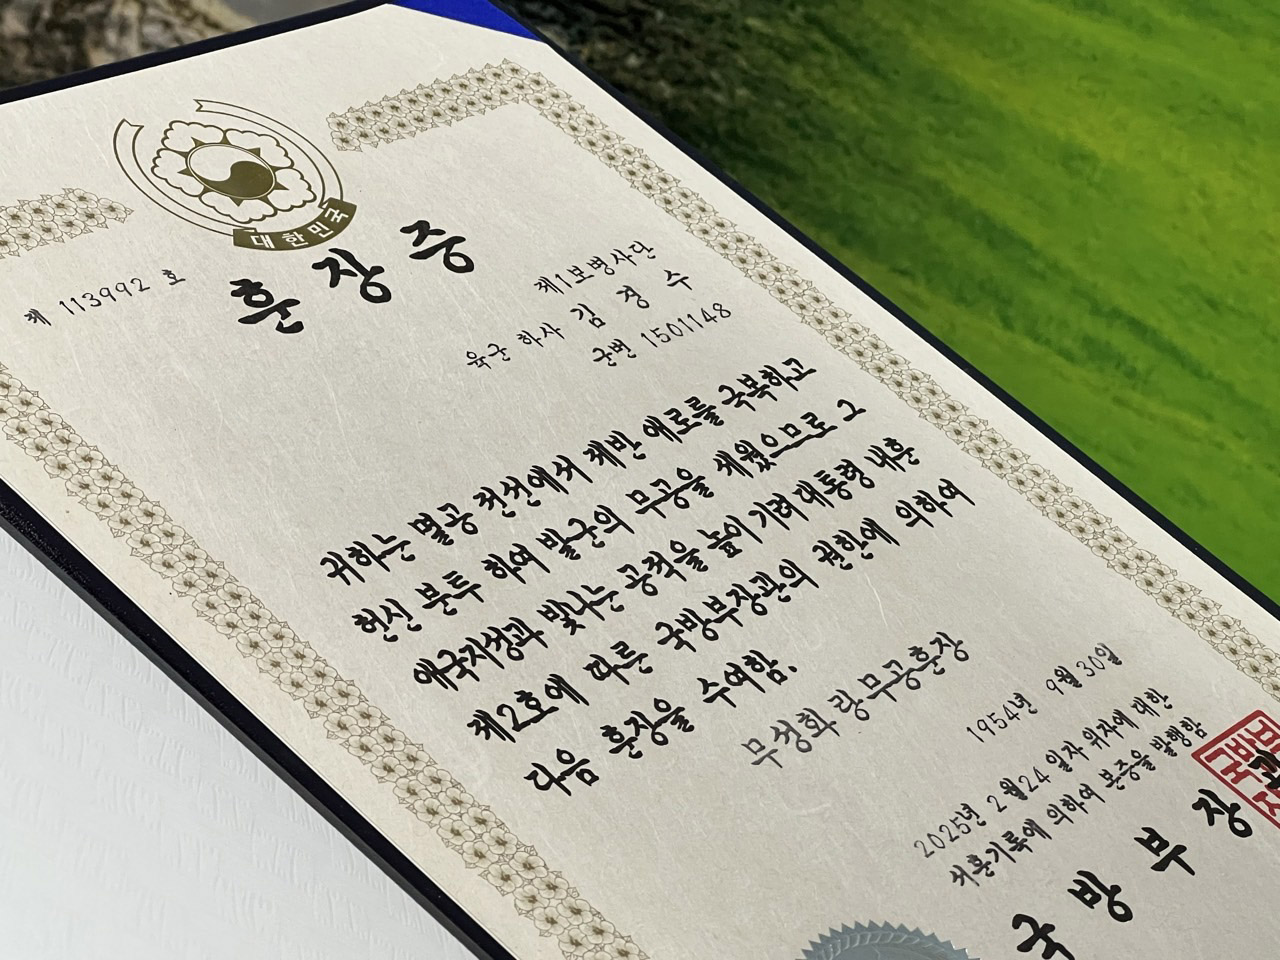 대한민국
제 113992 호
훈장증
제1보병사단
육군 하사 김경수
군번 1501148
귀하는 멸공 전선에서 제반 애로를 극복하고
헌신 분투 하여 발군의 무공을 세웠으므로 그
애국지성과 빛나는 공적을 높이 기려 대통령 내훈
제2호에 따른 국방부장관의 권한에 의하여
다음 훈장을 수여함.
무성화랑무공훈장
1954년 9월 30일
2025년 2월 24일자 위자에 대한
서훈기록에 의하여 본증을 발행함
국방부장